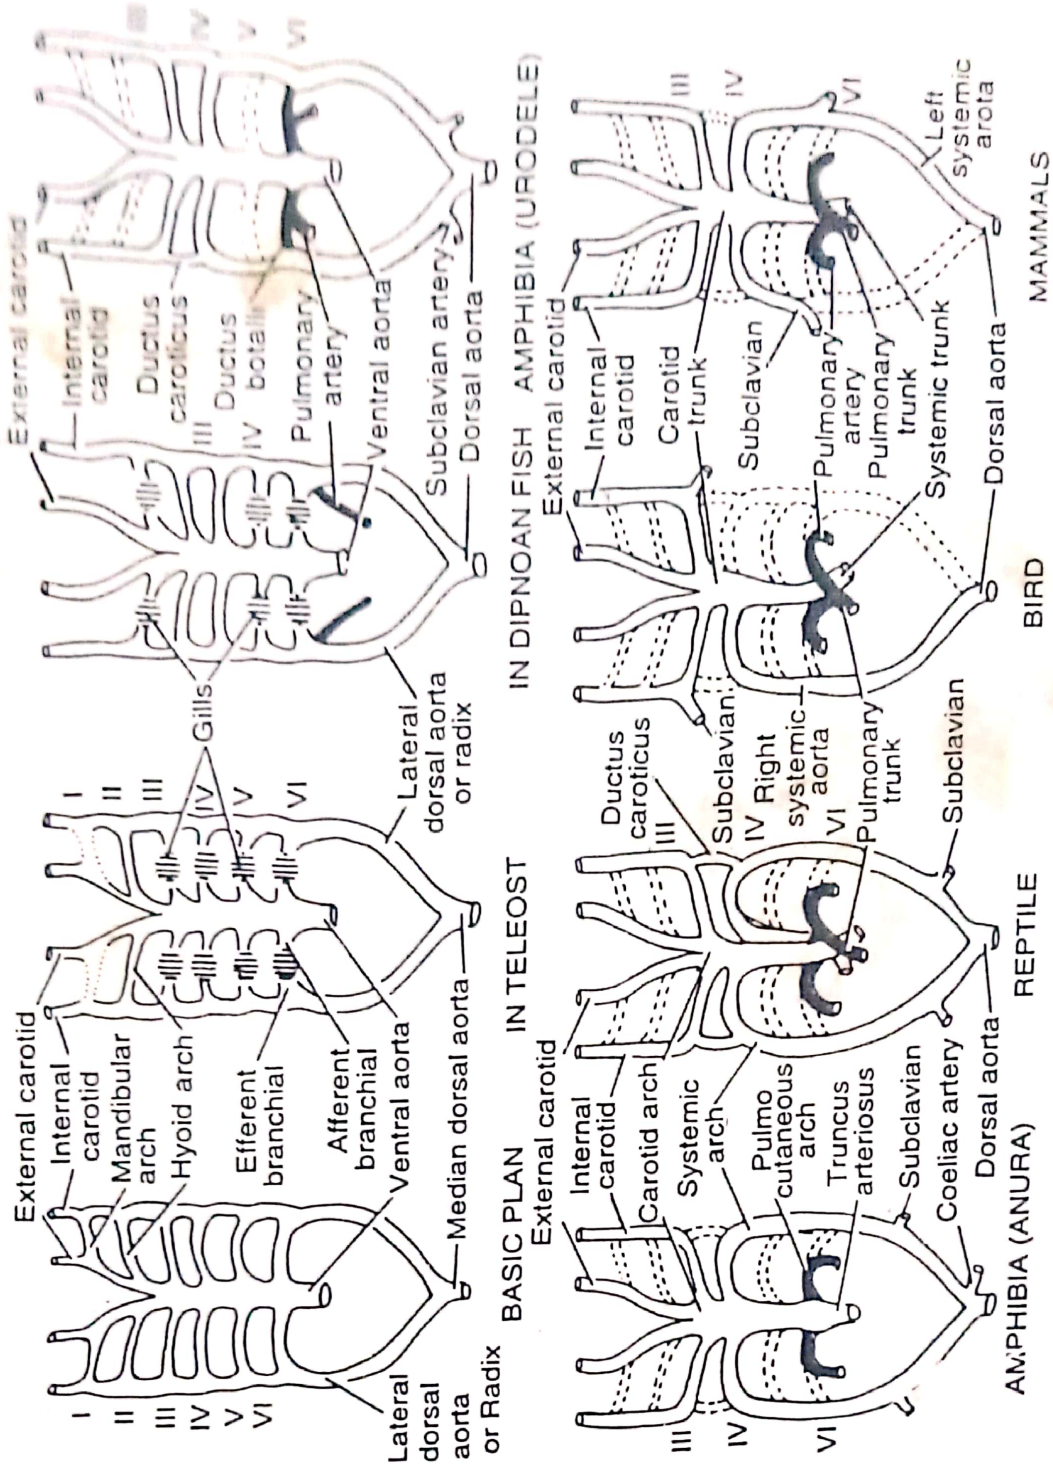 External carotid
Internal
carotid
Mandibular
arch
Hyoid arch
Efferent
branchial
Afferent
branchial
Ventral aorta
Median dorsal aorta
I
II
III
IV
V
VI
Lateral
dorsal
aorta
or Radix
BASIC PLAN
I
II
III
IV
V
VI
Gills
Lateral
dorsal aorta
or radix
IN TELEOST
External carotid
Internal
carotid
Ductus
caroticus
III
Ductus
botalli
IV
Pulmonary
artery
Ventral aorta
Subclavian artery
Dorsal aorta
IN DIPNOAN FISH
III
IV
V
VI
AMPHIBIA (URODELE)
External carotid
Internal
carotid
Carotid arch
Systemic
arch
Pulmo
cutaneous
arch
Truncus
arteriosus
Subclavian
Coeliac artery
Dorsal aorta
III
IV
VI
AMPHIBIA (ANURA)
Ductus
caroticus
III
Subclavian
IV Right
systemic
aorta
VI
Pulmonary
trunk
Subclavian
REPTILE
External carotid
Internal
carotid
Carotid
trunk
Subclavian
Pulmonary
artery
Pulmonary
trunk
Systemic trunk
Dorsal aorta
BIRD
III
IV
VI
Left
systemic
arota
MAMMALS